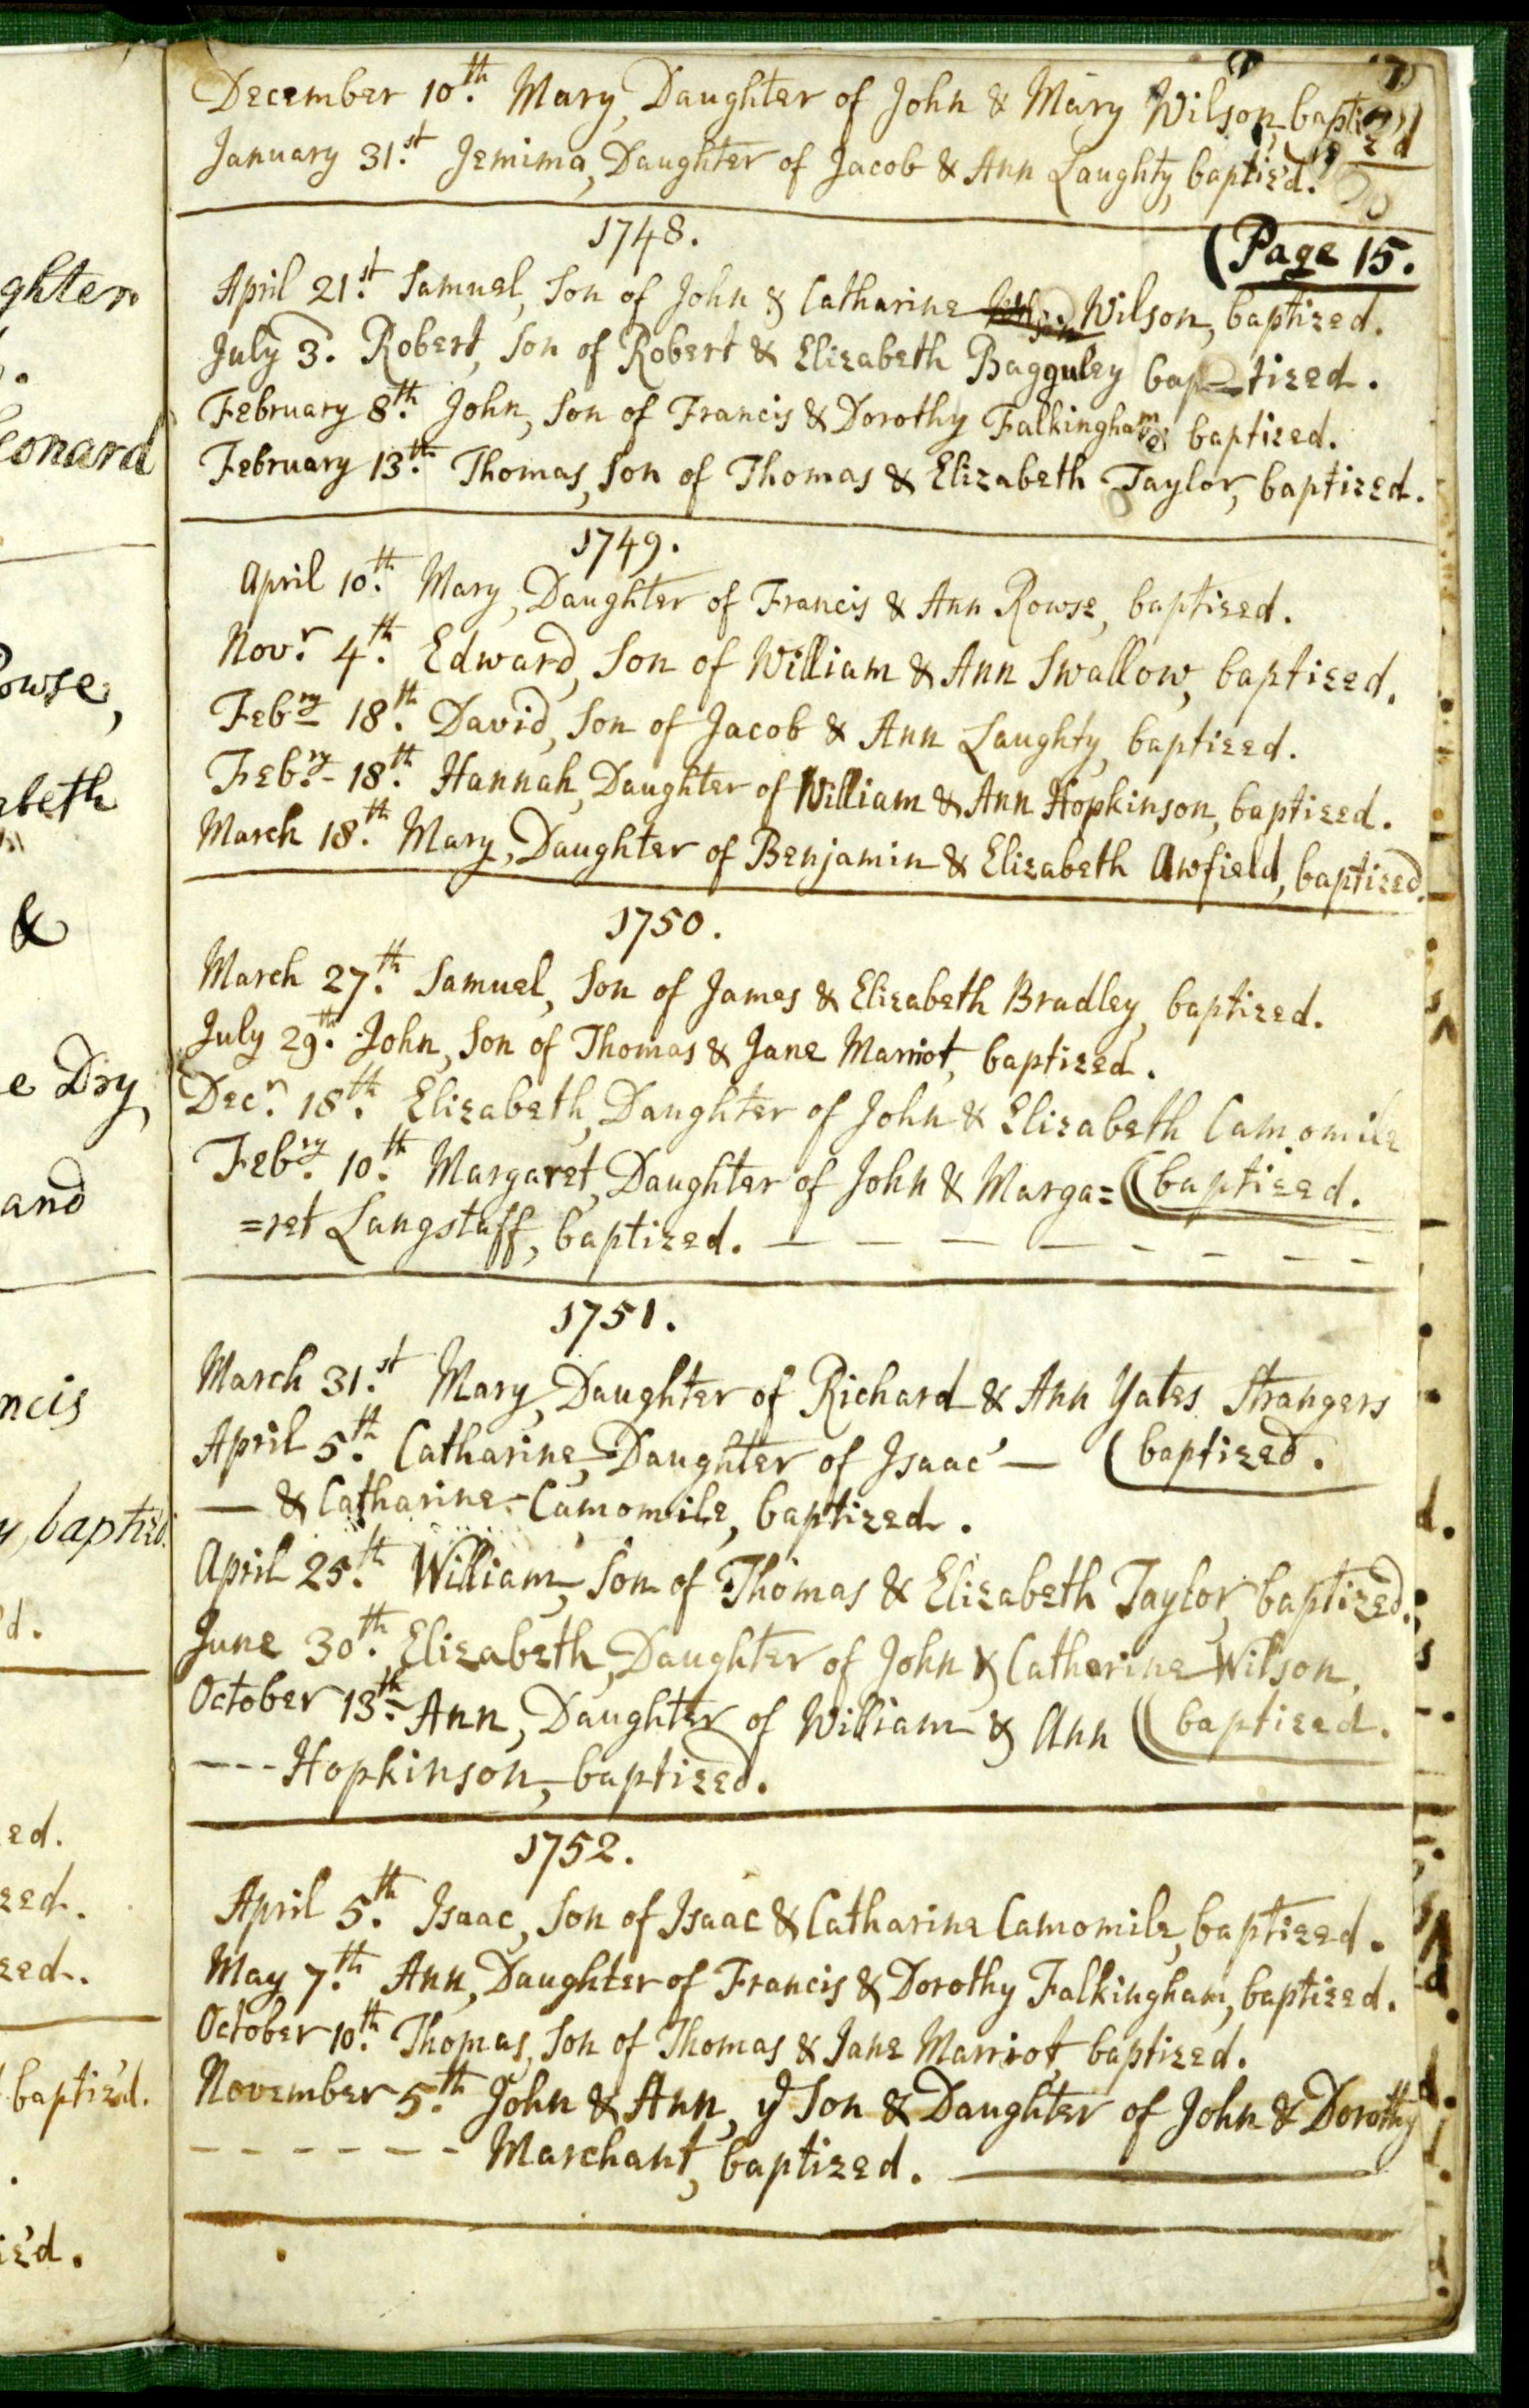 December 10th. Mary, Daughter of John & Mary Wilson, baptized
January 31.st Jemima, Daughter of Jacob & Ann Laughty, baptiz'd.
1748.
(Page 15.
April 21.st Samuel, Son of John & Catharine Wilson, baptized.
July 3. Robert, Son of Robert & Elizabeth Bagguley bap-tized.
February 8.th John, Son of Francis & Dorothy Falkingham baptized.
February 13.th Thomas, Son of Thomas & Elizabeth Taylor, baptized.
1749.
April 10.th Mary, Daughter of Francis & Ann Rowse, baptized.
Nov.r 4.th Edward, Son of William & Ann Swallow, baptized.
Feb.ry 18.th David, Son of Jacob & Ann Laughty, baptized.
Feb.ry - 18.th Hannah, Daughter of William & Ann Hopkinson, baptized.
March 18.th Mary, Daughter of Benjamin & Elizabeth Awfield, baptized.
1750.
March 27.th Samuel, Son of James & Elizabeth Bradley, baptized.
July 29.th John, Son of Thomas & Jane Marriot, baptized.
Dec.r 18.th Elizabeth, Daughter of John & Elizabeth Camomile
Feb.ry 10.th Margaret, Daughter of John & Marga= (baptized.
=ret Langstaff, baptized. — — — — - - - - -
1751.
March 31.st Mary, Daughter of Richard & Ann Yates Strangers
April 5.th Catharine, Daughter of Isaac — (baptized.
— & Catharine - Camomile, baptized.
April 25.th William, Son of Thomas & Elizabeth Taylor, baptized.
June 30.th Elizabeth, Daughter of John & Catherine Wilson,
October 13.th - Ann, Daughter of William & Ann (baptized.
--- Hopkinson, baptized.
1752.
April 5.th Isaac, Son of Isaac & Catharine Camomile, baptized.
May 7.th Ann, Daughter of Francis & Dorothy Falkingham, baptized.
October 10.th Thomas, Son of Thomas & Jane Marriot, baptized.
November 5.th John & Ann, ye Son & Daughter of John & Dorothy
- - - - - - Marchant, baptized. —